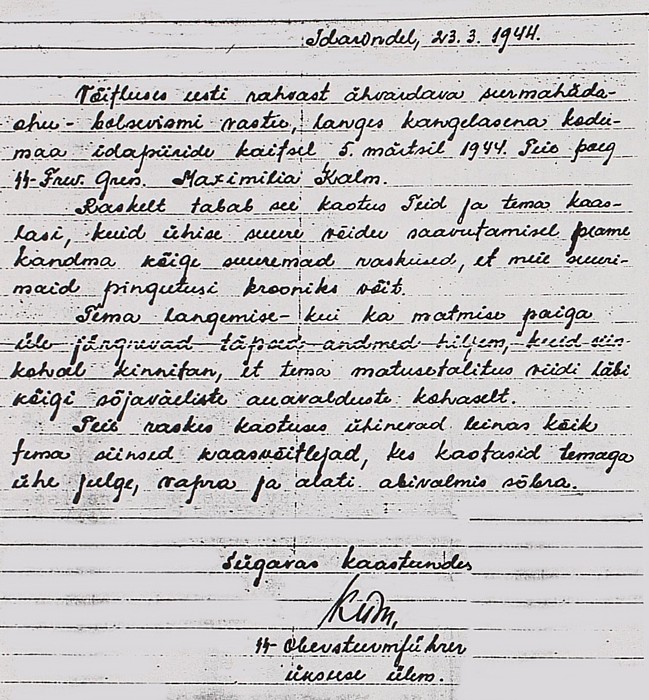 Idarindel, 23.3.1944.
Võitluses eesti rahvast ähvardava surmahäda-
ohu - bolsevismi vastu, langes kangelasena kodu-
maa idapiiride kaitsel 5. märtsil 1944. Teie poeg
SS-Frw. Gren. Maximilia Kalm.
Raskelt tabab see kaotus Teid ja tema kaas-
lasi, kuid ühise suure võidu saavutamisel peame
kandma kõige suuremad raskused, et meie suuri-
maid pingutusi krooniks võit.
Tema langemise- kui ka matmise paiga
üle järgnevad täpsed andmed hiljem, kuid siin-
kohal kinnitan, et tema matusetalitus viidi läbi
kõigi sõjaväeliste auavalduste kohaselt.
Teie raskes kaotuses ühinevad leinas kõik
tema siinsed kaasvõitlejad, kes kaotasid temaga
ühe julge, vapra ja alati abivalmis sõbra.
Sügavas kaastundes
SS-Obersturmführer
üksuse ülem.